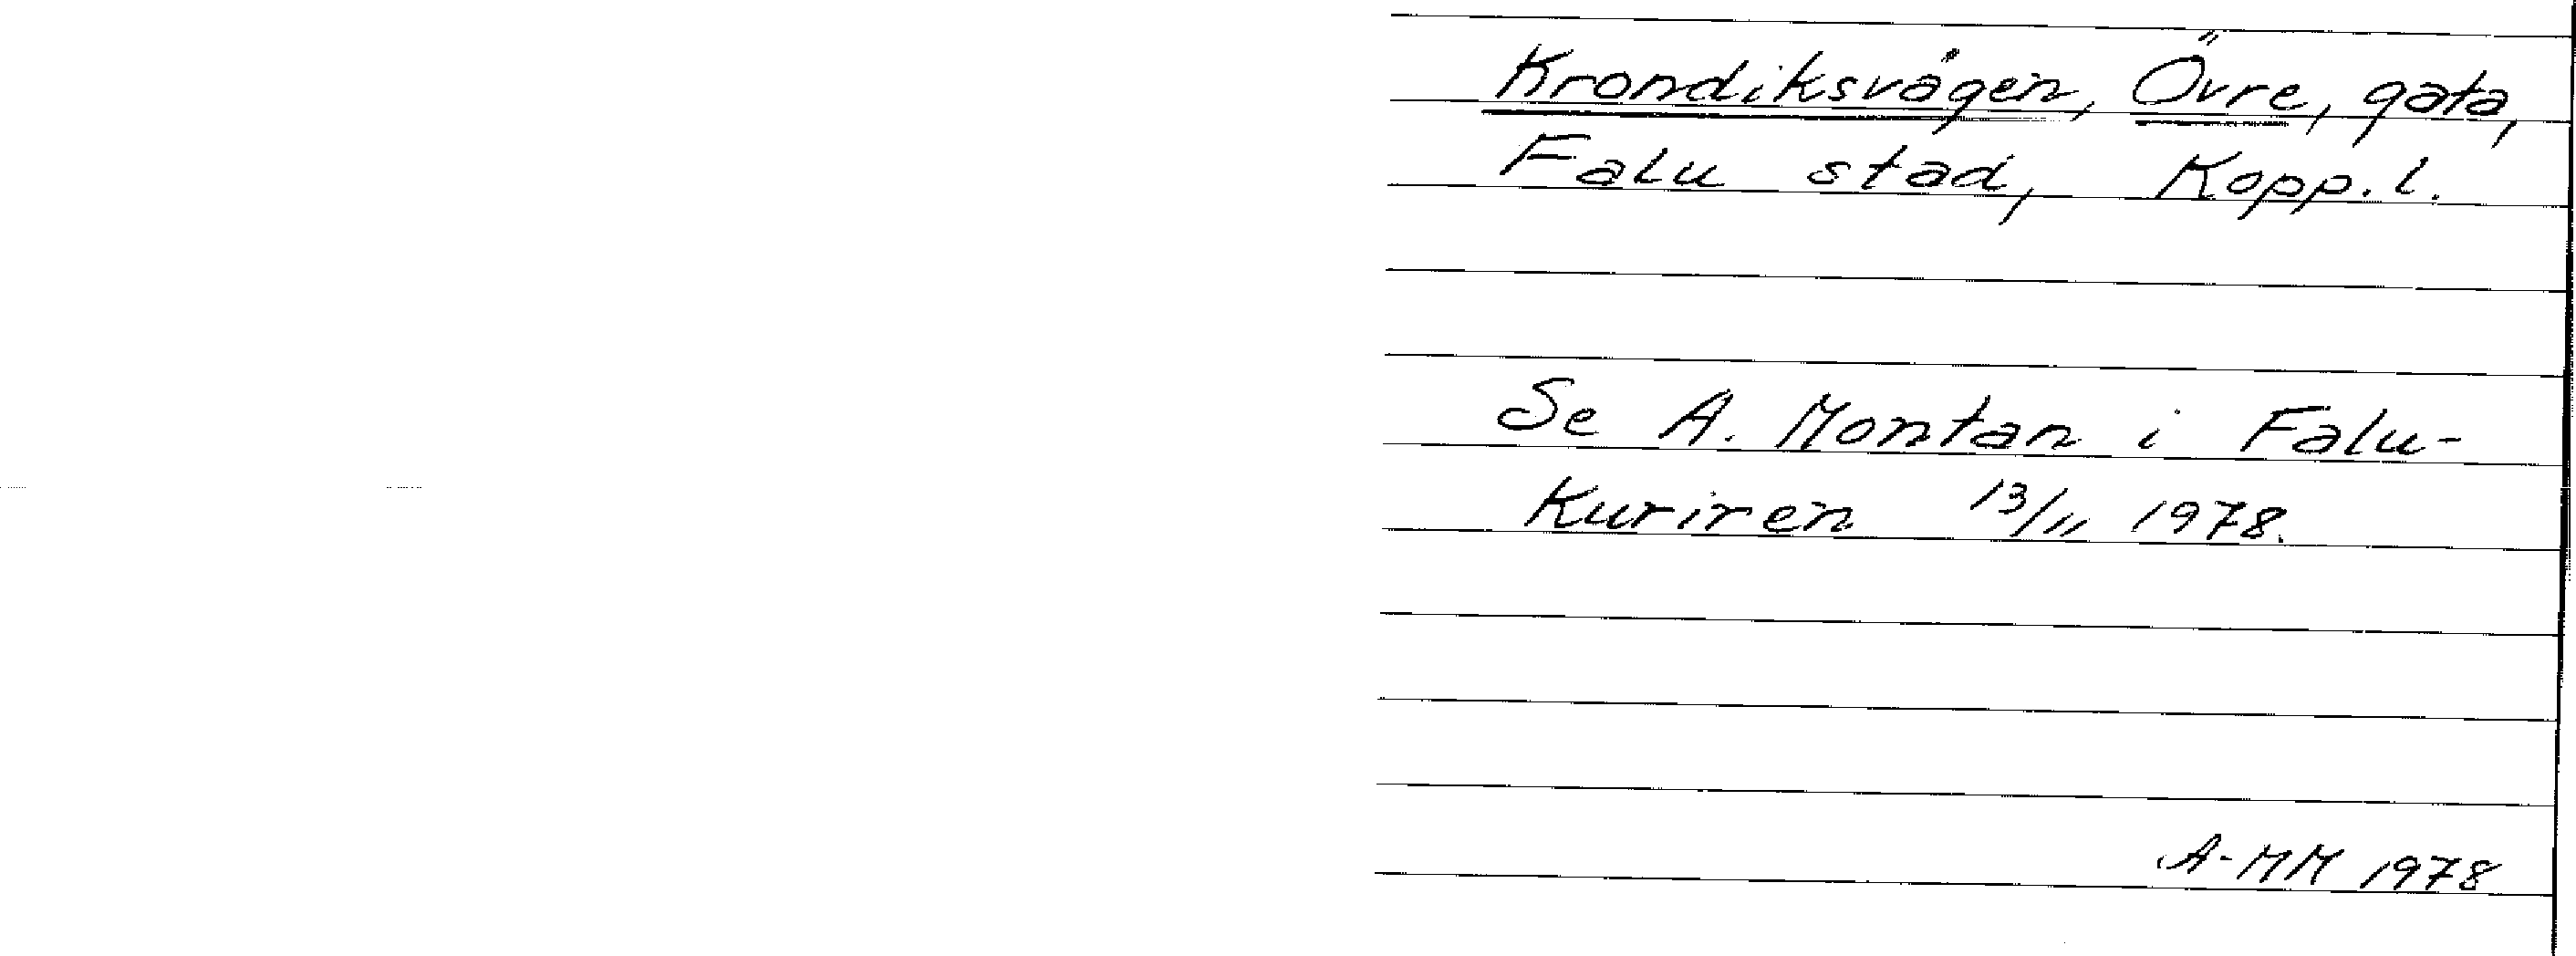 Krondiksvägen, Övre, gata,
Falu stad, Kopp. l.
Se A. Montan i Falu-
Kuriren 13/11 1978.
A-MM 1978